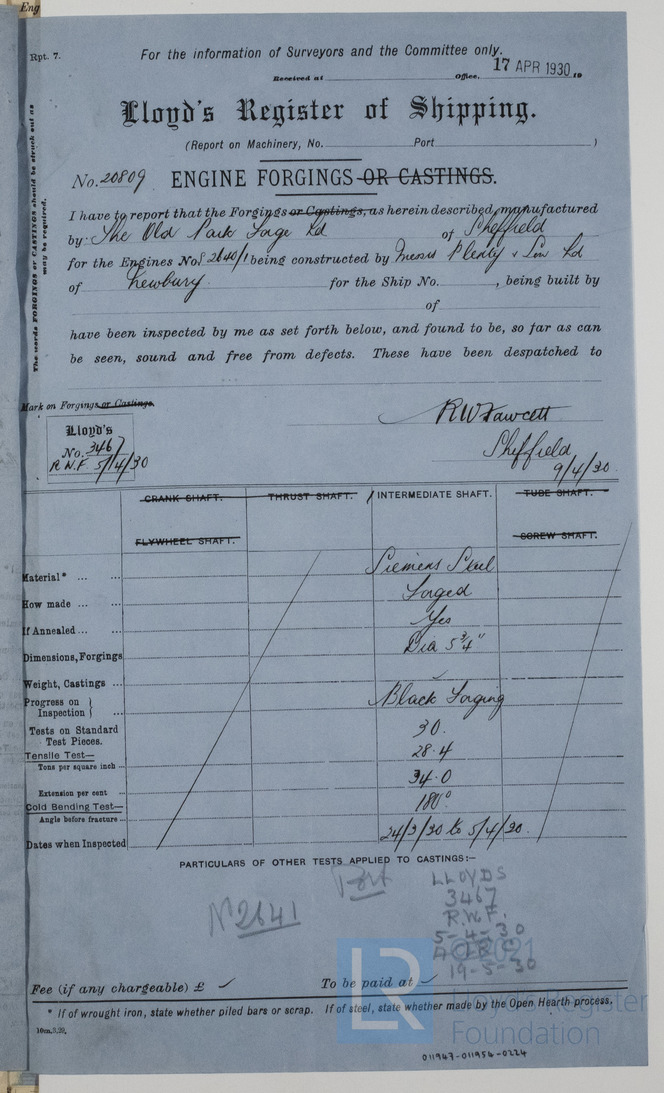 Eng
Rpt. 7.
For the information of Surveyors and the Committee only.
Received at Office, 17 APR 1930 19
Lloyd's Register of Shipping.
(Report on Machinery, No. Port )
No. 20809 ENGINE FORGINGS OR CASTINGS.
The words FORGINGS or CASTINGS should be struck out as
may be required.
I have to report that the Forgings or Castings, as herein described, manufactured
by: The Old Park Forge Ld of Sheffield
for the Engines Nos 2640/1 being constructed by Messrs Plenty & Son Ld
of Newbury for the Ship No. , being built by
of
have been inspected by me as set forth below, and found to be, so far as can
be seen, sound and free from defects. These have been despatched to
Mark on Forgings or Castings.
R W Fawcett
Lloyd's
No. 3467
R.W.F. 5/4/30
Sheffield
9/4/30.
CRANK SHAFT. THRUST SHAFT. 1 INTERMEDIATE SHAFT. TUBE SHAFT.
FLYWHEEL SHAFT. SCREW SHAFT.
Material* ... ... Siemens Steel
How made ... ... Forged
If Annealed ... ... Yes
Dimensions, Forgings Dia 5 3/4"
Weight, Castings ...
Progress on Inspection } ... Black Forging
Tests on Standard Test Pieces. 30.
Tensile Test—
Tons per square inch ... 28.4
Extension per cent ... 34.0
Cold Bending Test—
Angle before fracture ... 180°
Dates when Inspected 24/3/30 to 5/4/30.
PARTICULARS OF OTHER TESTS APPLIED TO CASTINGS:—
Port
No 2641
LLOYDS
3467
R.W.F.
5-4-30
19-5-30
© 2021
LR
Lloyd's Register
Foundation
Fee (if any chargeable) £ To be paid at
* If of wrought iron, state whether piled bars or scrap. If of steel, state whether made by the Open Hearth process.
10m.3,29.
011947-011956-0224